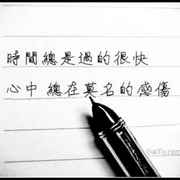 時間總是過的很快
心中總在莫名的感傷